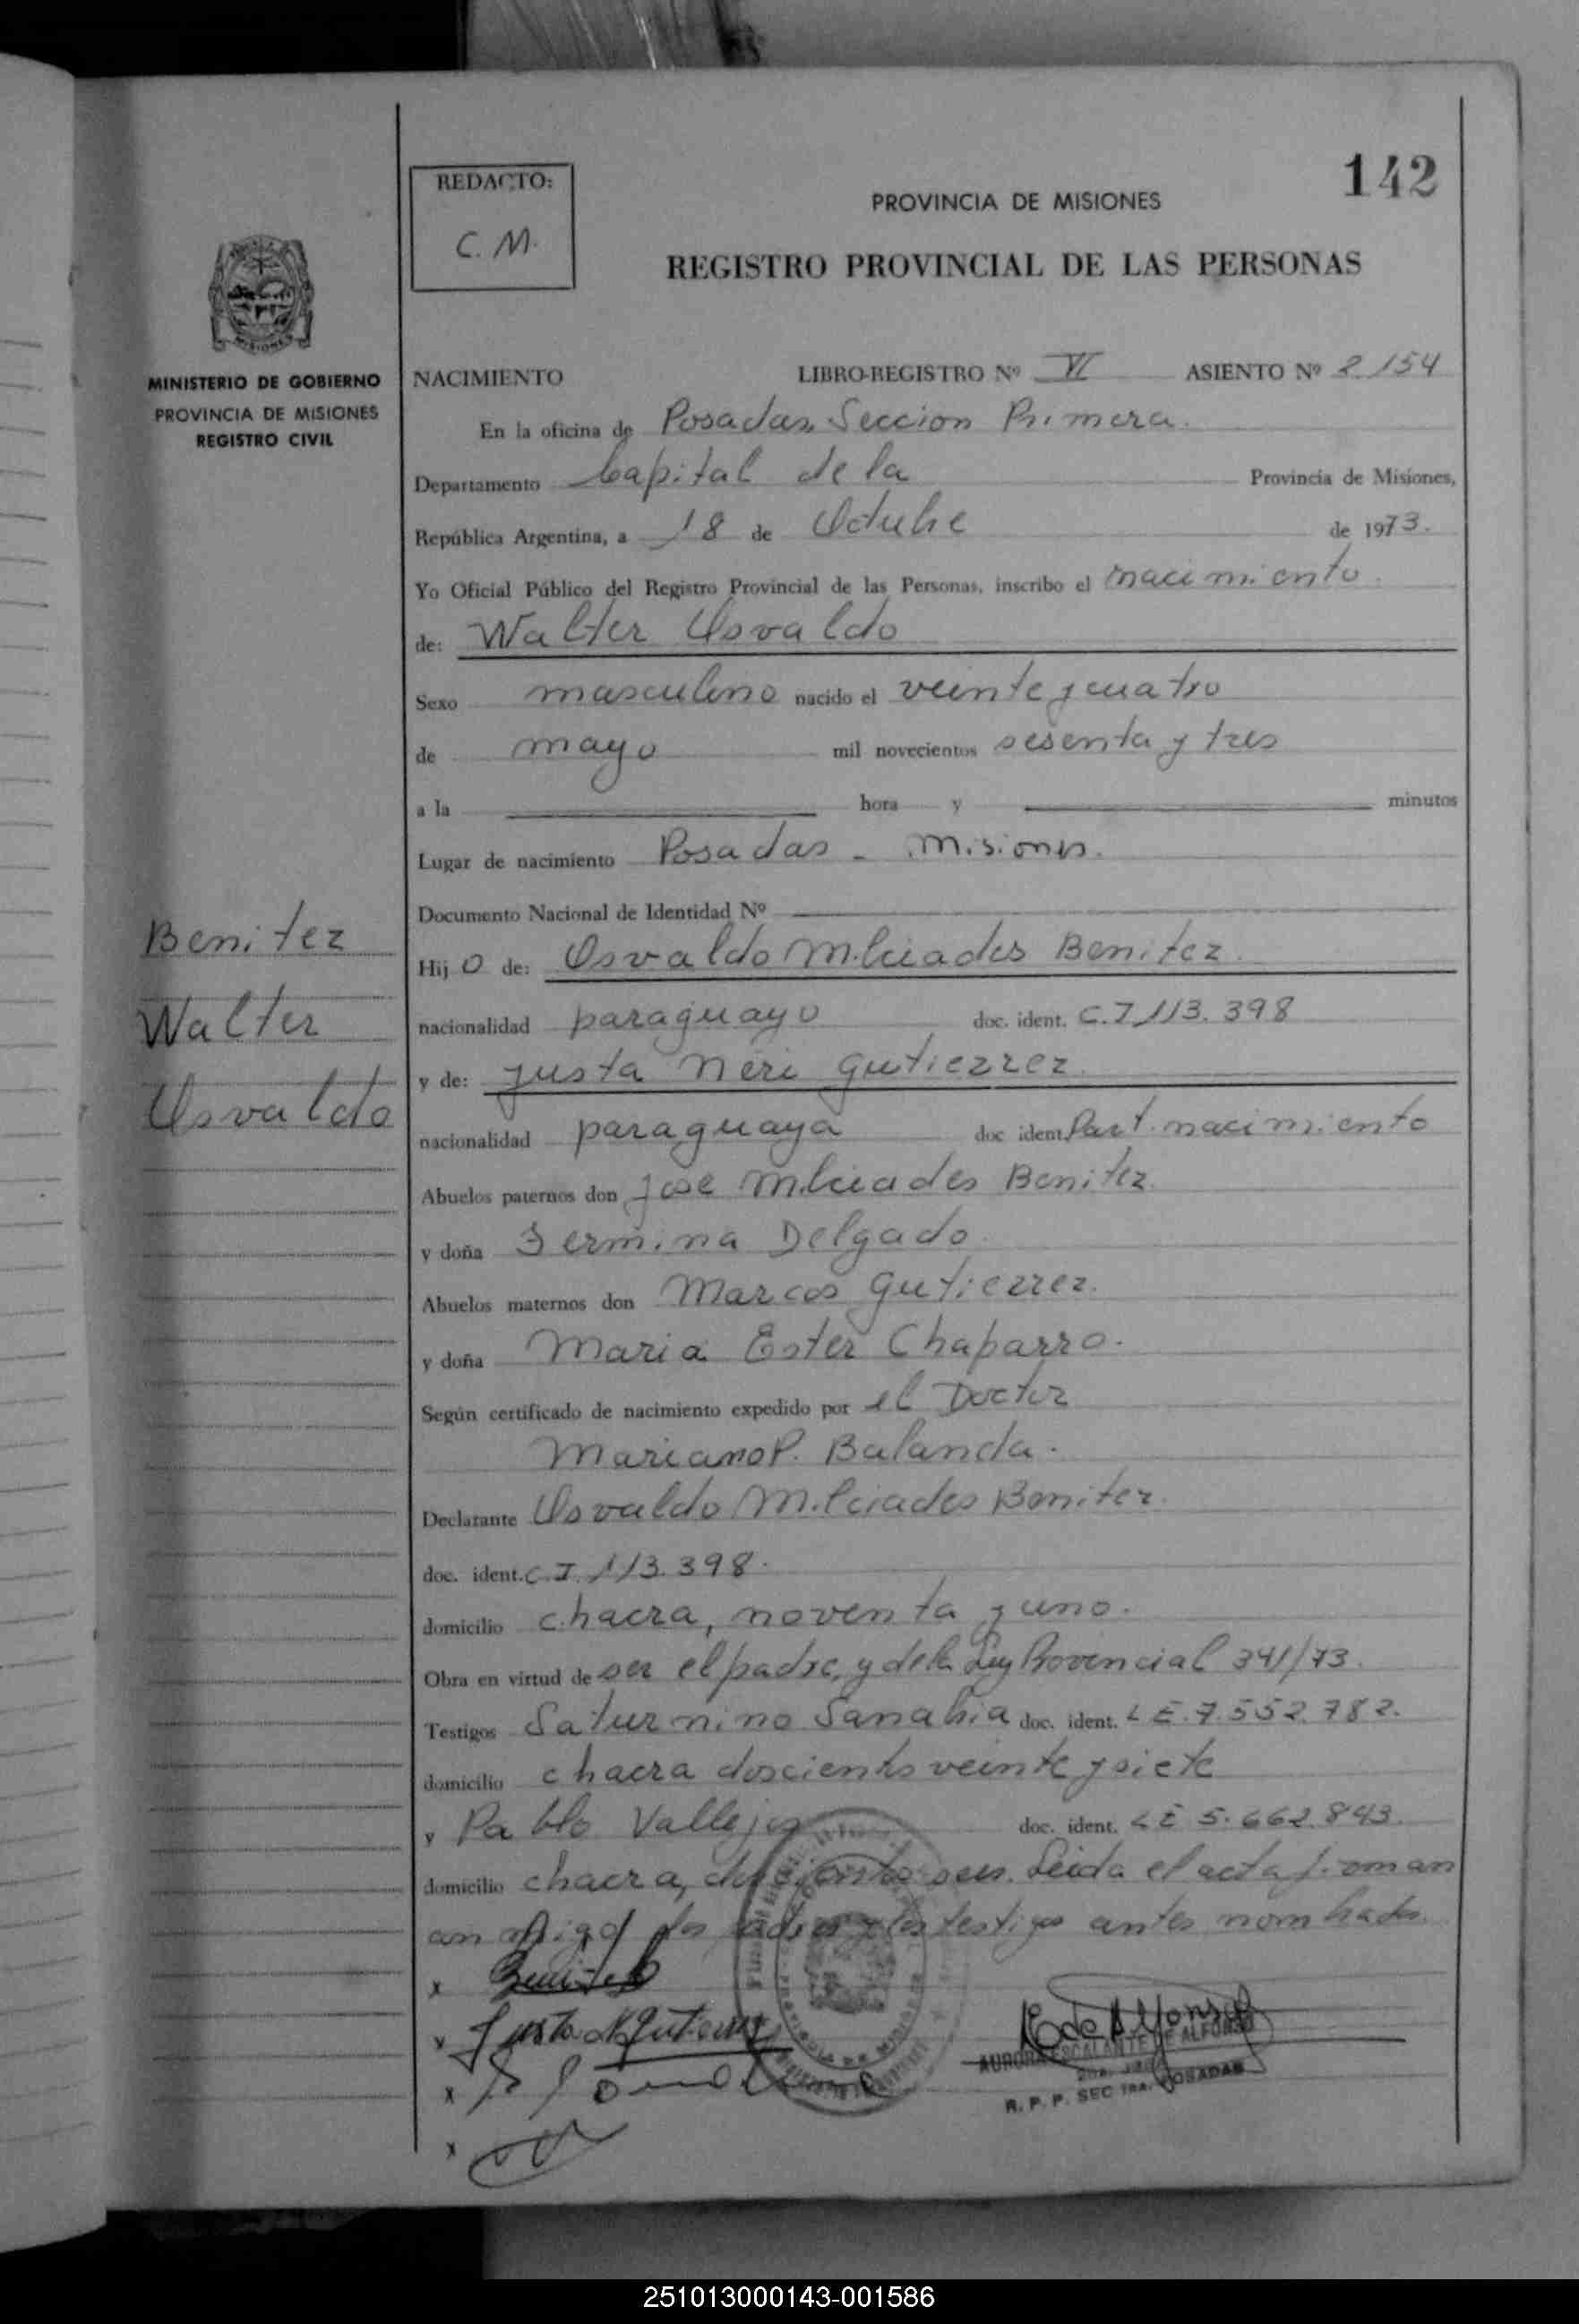 142
REDACTO:
C. M.
PROVINCIA DE MISIONES
REGISTRO PROVINCIAL DE LAS PERSONAS
MISIONES
MINISTERIO DE GOBIERNO
PROVINCIA DE MISIONES
REGISTRO CIVIL
NACIMIENTO LIBRO-REGISTRO Nº VI ASIENTO Nº 2154
En la oficina de Posadas, Seccion Primera.
Departamento Capital de la Provincia de Misiones,
República Argentina, a 18 de Octubre de 1973.
Yo Oficial Público del Registro Provincial de las Personas, inscribo el nacimiento.
de: Walter Osvaldo
Sexo masculino nacido el veinte y cuatro
de mayo mil novecientos sesenta y tres
a la hora y minutos
Lugar de nacimiento Posadas - Misiones.
Documento Nacional de Identidad Nº
Benitez
Walter
Osvaldo
Hijo de: Osvaldo Milciades Benitez.
nacionalidad paraguayo doc. ident. C.I 113.398
y de: Justa Neri Gutierrez.
nacionalidad paraguaya doc ident Part. nacimiento
Abuelos paternos don Jose Milciades Benitez.
y doña Fermina Delgado.
Abuelos maternos don Marcos Gutierrez.
y doña Maria Ester Chaparro.
Según certificado de nacimiento expedido por el Doctor
Mariano P. Balanda.
Declarante Osvaldo Milciades Benitez.
doc. ident. C.I. 113.398.
domicilio chacra, noventa y uno.
Obra en virtud de ser el padre, y de la Ley Provincial 341/73.
Testigos Saturnino Sanabria doc. ident. LE. 7.552.782.
domicilio chacra doscientos veinte y siete
y Pablo Vallejos doc. ident. LE 5.662.843.
domicilio chacra, seis. Leida el acta firman
los padres y los testigos antes nombrados.
x Benitez
x Justa N Gutierrez
x
x
AURORA ESCALANTE DE ALFONSO
R. P. P. SEC 1RA. POSADAS
251013000143-001586